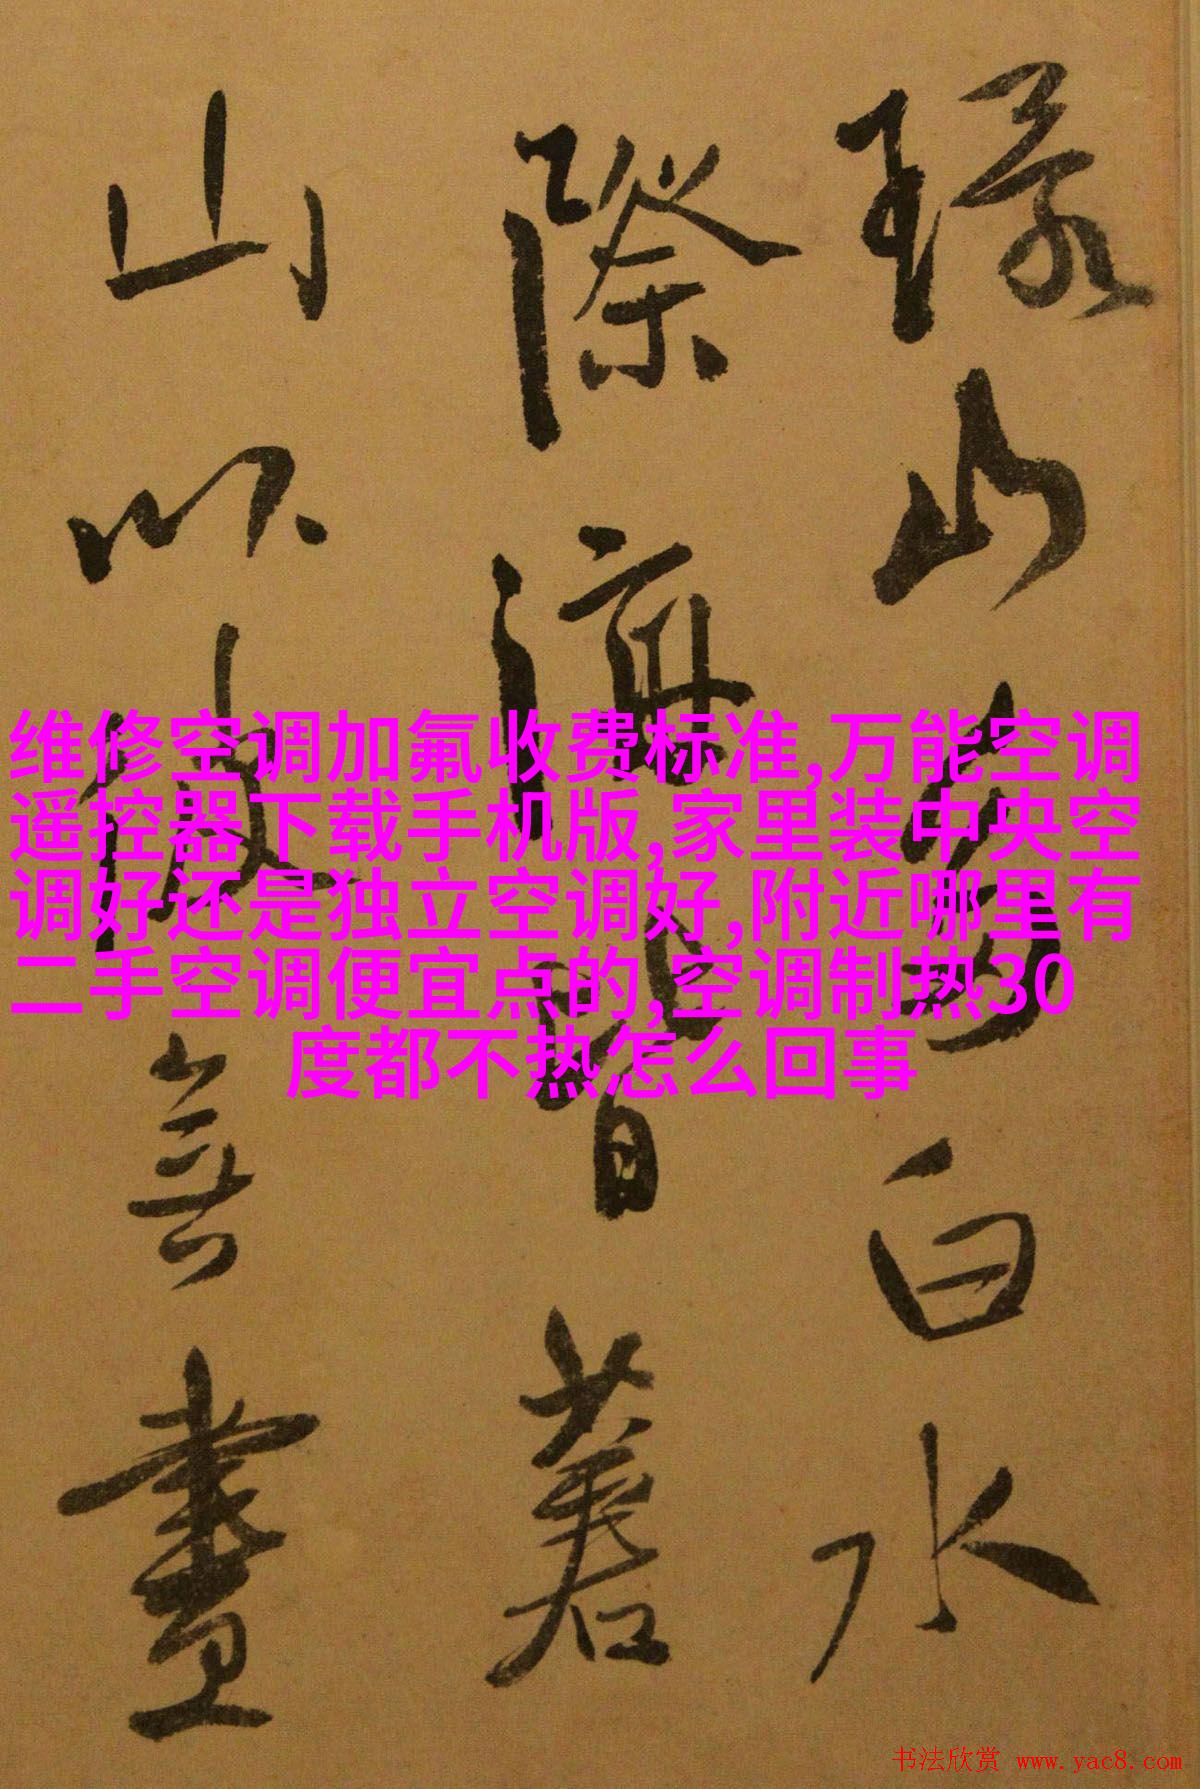 山
際
山以
無
畫
著
白
水
维修空调加氟收费标准,万能空调
遥控器下载手机版,家里装中央空
调好还是独立空调好,附近哪里有
二手空调便宜点的,空调制热30
度都不热怎么回事
书法欣赏 www.yac8.com